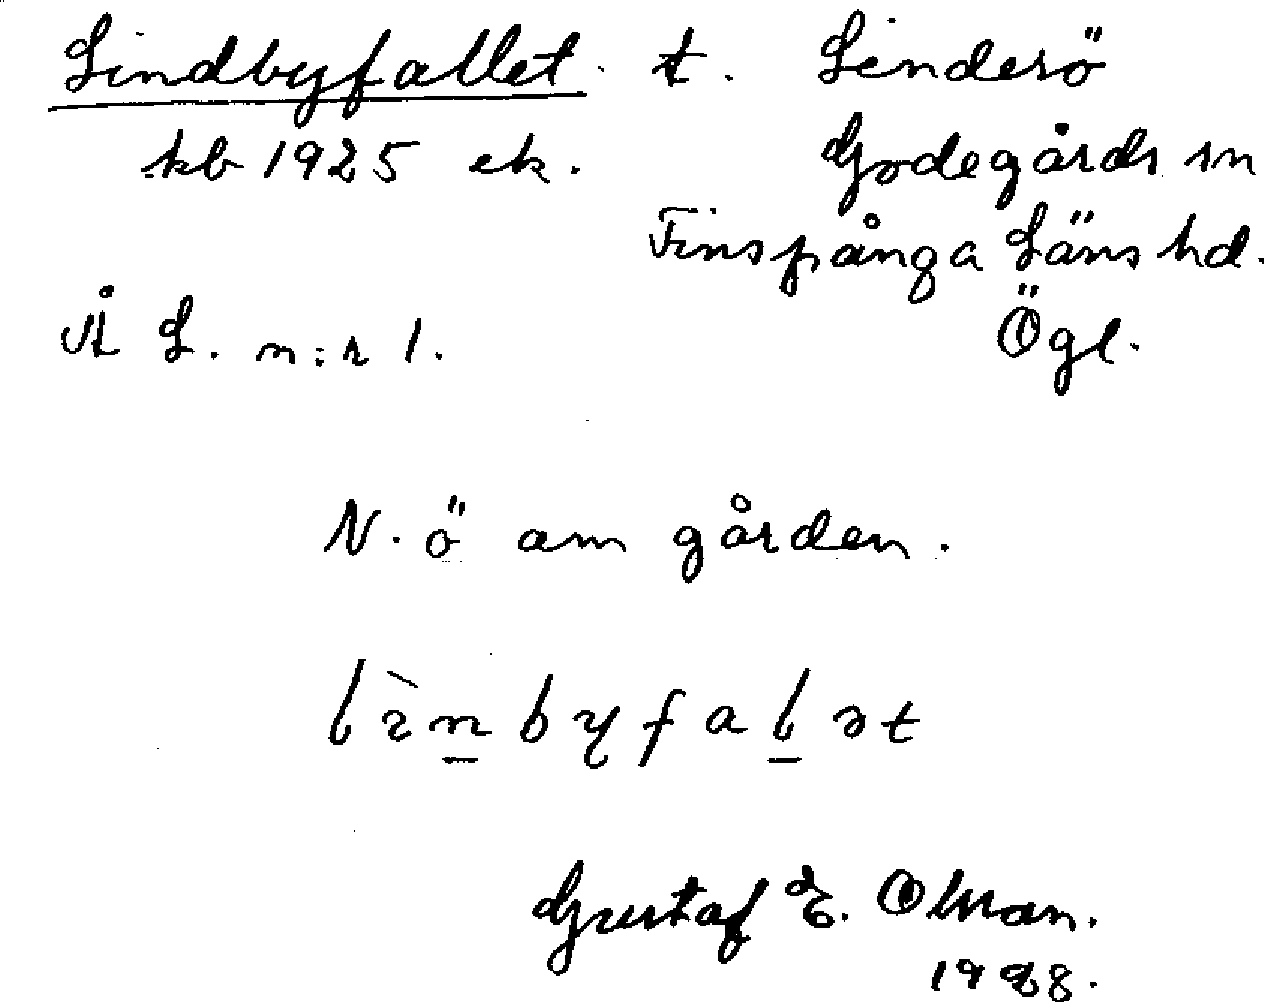 Lindbyfallet. t. Lindersö
kb 1925 ek. Godegårds sn
Finspånga Läns hd.
ÅL. n:r 1. Ögl.
N. ö om gården.
lìnbyfalət
Gustaf E. Olman.